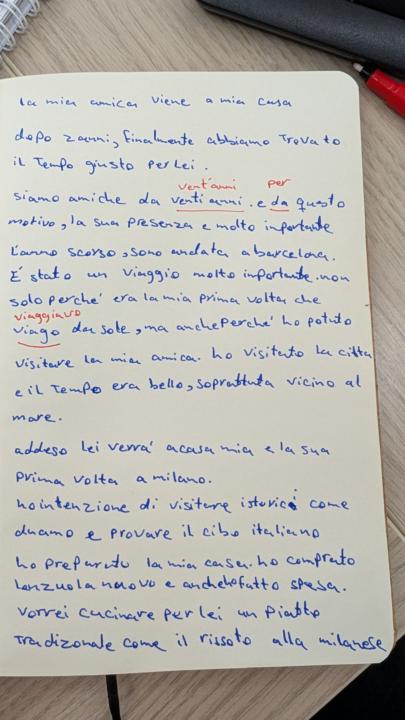 la mia amica viene a mia casa
dopo 2 anni, finalmente abbiamo trovato
il tempo giusto per lei.
vent'anni per
siamo amiche da venti anni. e da questo
motivo, la sua presenza e molto importante
l'anno scorso, sono andata a barcelona.
É stato un viaggio molto importante. non
solo perché era la mia prima volta che
viaggiavo
viago da sole, ma anche perché ho potuto
visitare la mia amica. ho visitato la citta
e il tempo era bello, soprattuta vicino al
mare.
addeso lei verrá a casa mia e la sua
prima volta a milano.
ho intenzione di visitare istorici come
duamo e provare il cibo italiano
ho preparato la mia casa. ho comprato
lenzuola nuovo e anche ho fatto spesa.
vorrei cucinare per lei un piatto
tradizonale come il rissoto alla milanese